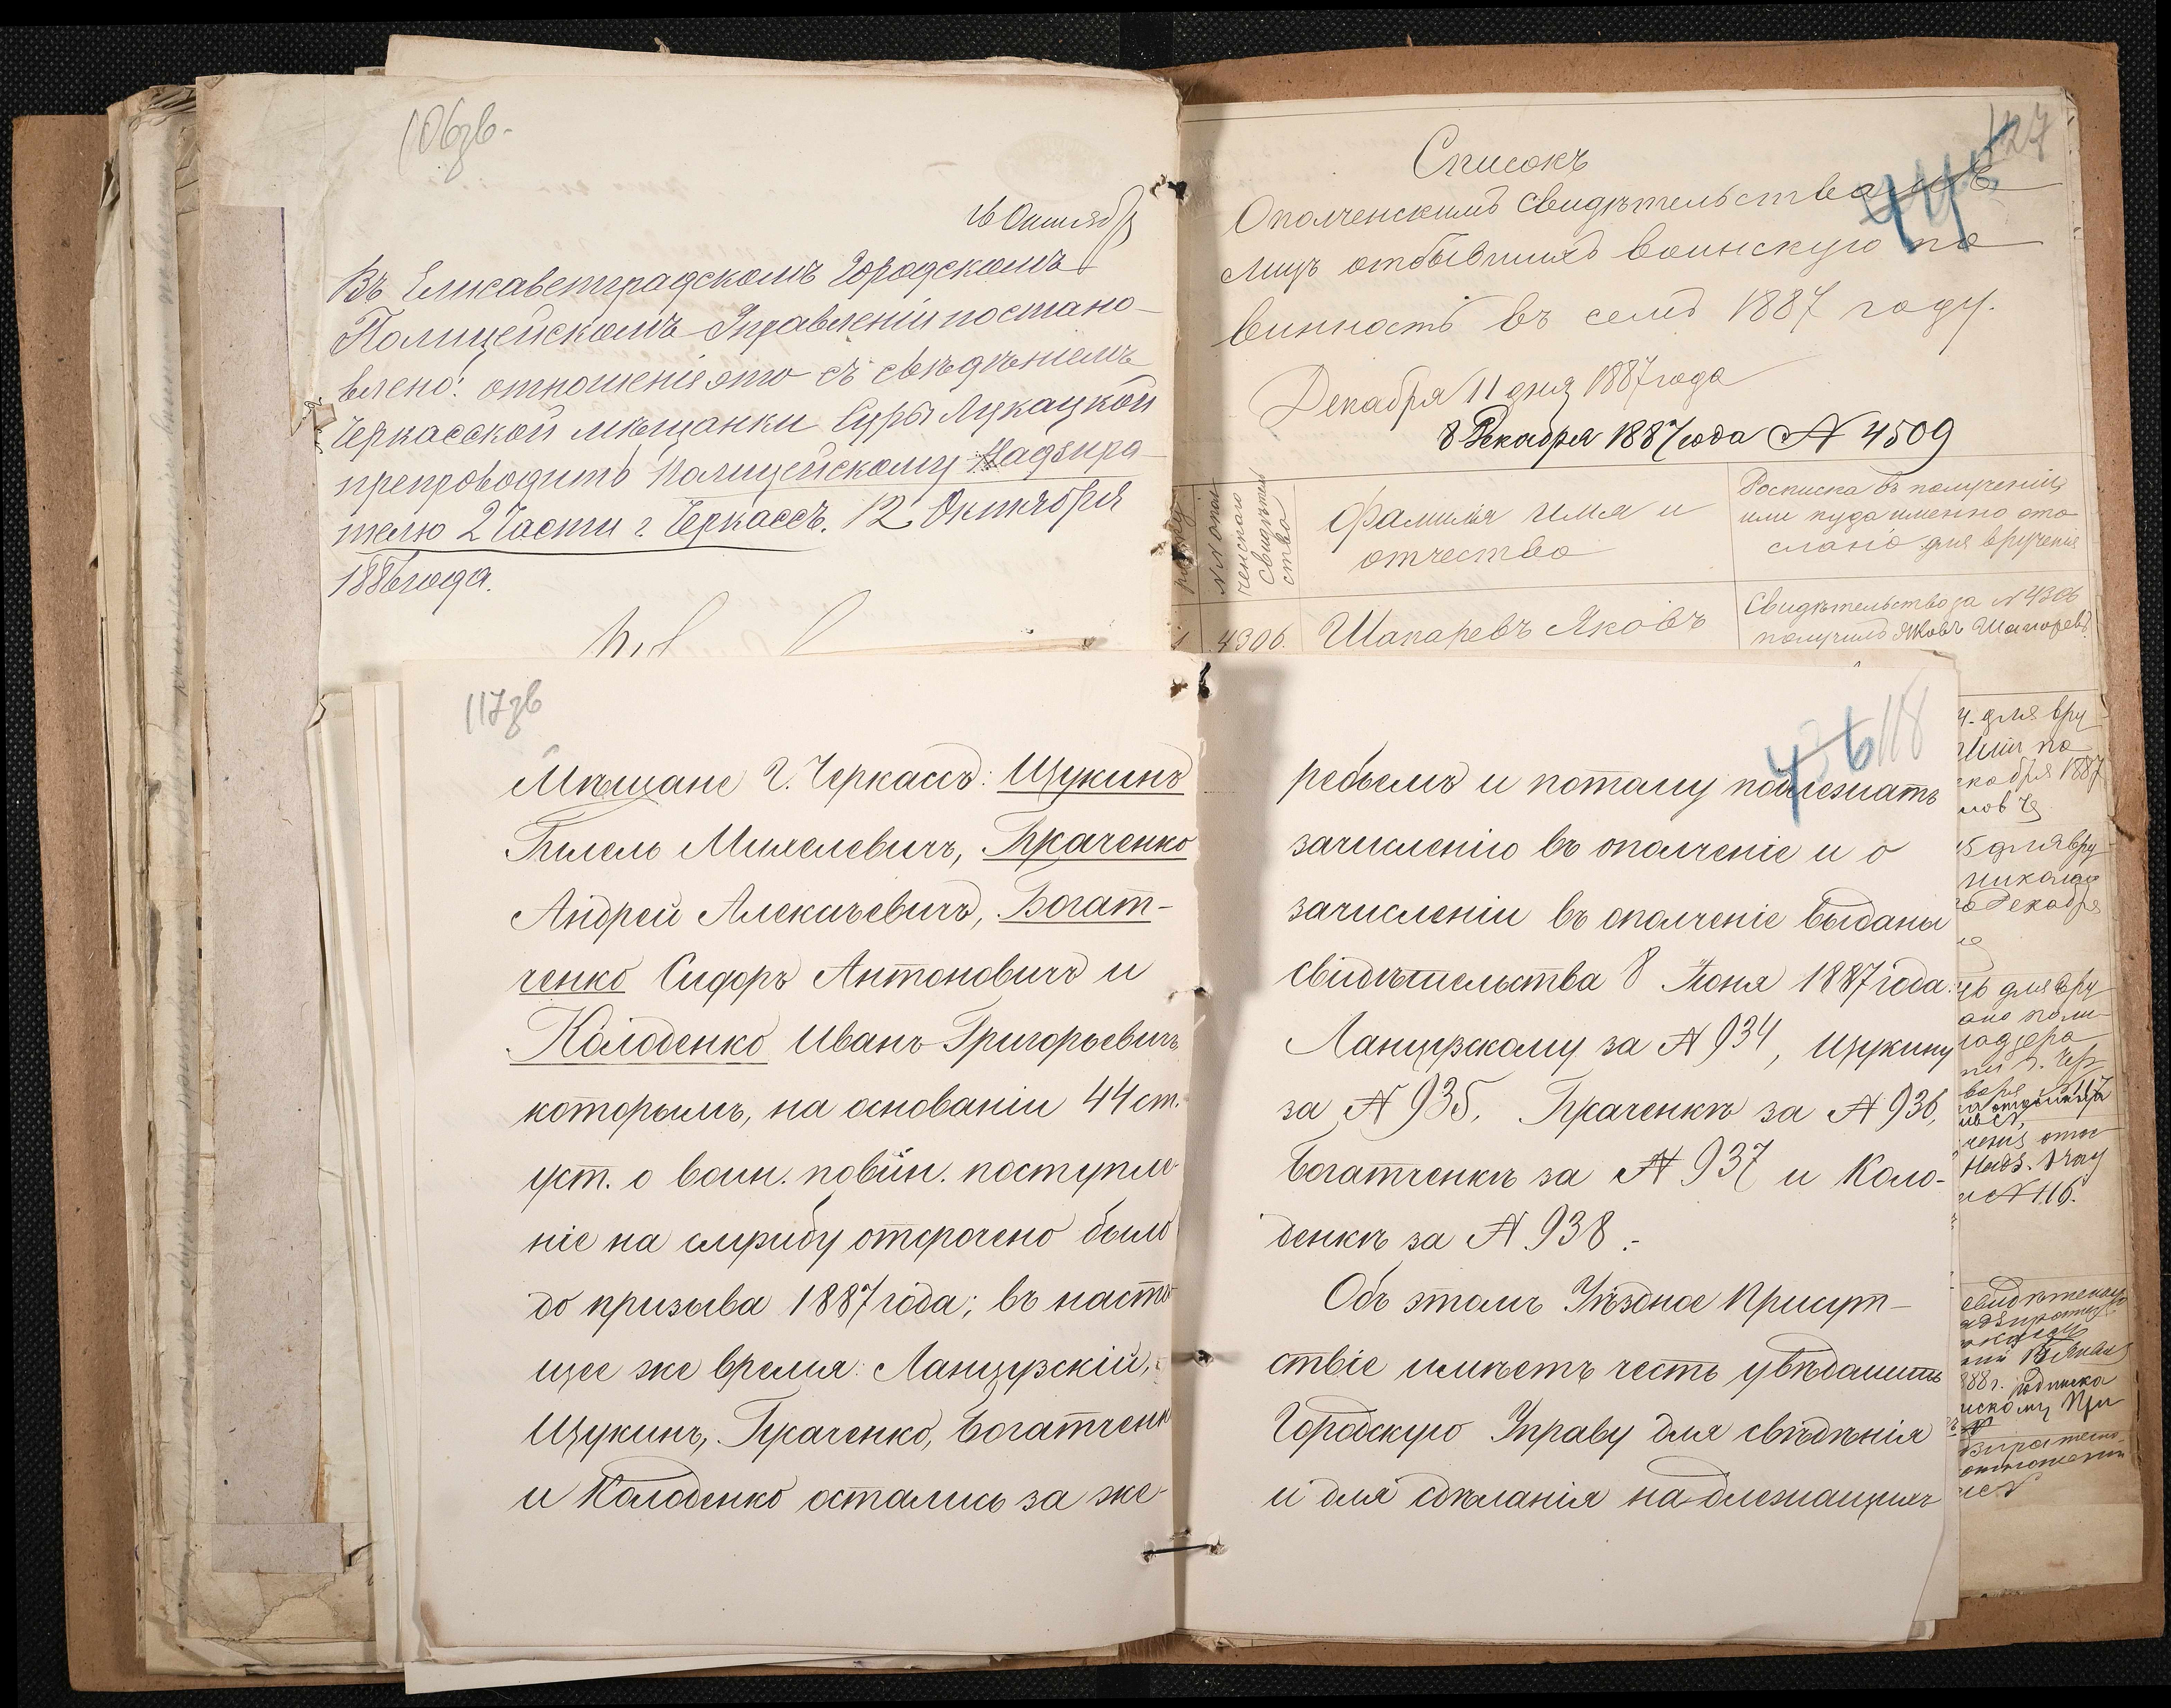 106зв.
16 Октября
Въ Елисаветградскомъ Городскомъ
Полицейскомъ Управленіи постано-
влено: отношеніе это съ свѣдѣніемъ
Черкасской мѣщанки Суры Лукацкой
препроводить Полицейскому Надзира-
телю 2 Части г. Черкассъ. 12 Октября
1886 года.
127
Списокъ
Ополченскимъ свидѣтельствамъ
лицъ отбывшихъ воинскую по
винность въ семъ 1887 году.
Декабря 11 дня 1887 года
8 Декабря 1887 года № 4509
№№ опол-
ченскаго
свидѣтель
ства
Фамилія имя и
отчество
Росписка въ полученіи
или куда именно ото
слано для врученія
1
4306.
Шапаревъ Яковъ
Свидѣтельство за № 4306
получилъ Яковъ Шапоревъ
117зв
Мѣщане г. Черкассъ: Щукинъ
Гилель Михелевичъ, Ткаченко
Андрей Алексѣевичъ, Богат-
ченко Сидоръ Антоновичъ и
Колоденко Иванъ Григорьевичъ
которымъ, на основаніи 44 ст.
уст. о воин. повин. поступле-
ніе на службу отсрочено было
до призыва 1887 года; въ насто-
щее же время: Ланцурскій,
Щукинъ, Ткаченко, Богатченко
и Колоденко остались за же-
118
ребьемъ и потому подлежатъ
зачисленію въ ополченіе и о
зачисленіи въ ополченіе выданы
свидѣтельства 8 Іюня 1887 года:
Ланцурскому за № 934, Щукину
за № 935, Ткаченкѣ за № 936,
Богатченкѣ за № 937 и Коло-
денкѣ за № 938.-
Объ этомъ Уѣздное Присут-
ствіе имѣетъ честь увѣдомить
Городскую Управу для свѣдѣнія
и для сдѣланія надлежащихъ
для вру
кабря 1887
для вру
Декабря
для вру
№ 116.
888 г.